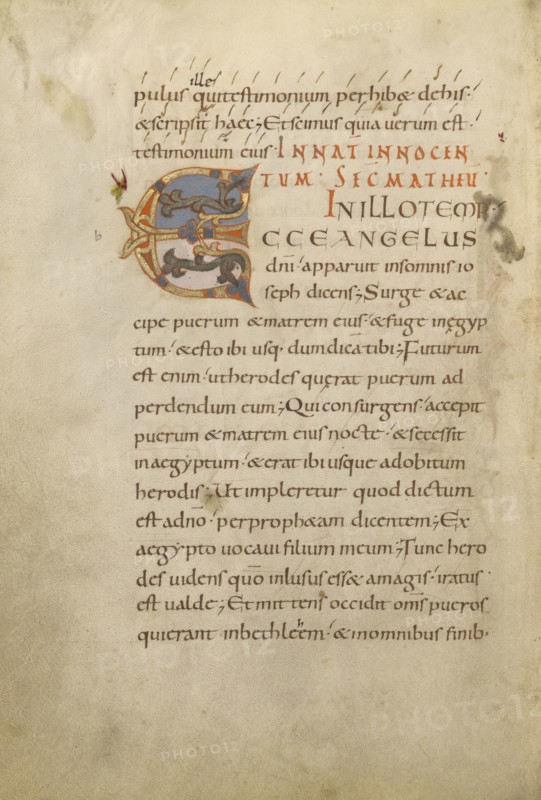 ille
pulus qui testimonium perhib& dehis·
& scripsit haec; Et scimus quia uerum est·
testimonium eius· IN NAT̄ INNOCEN
TUM· SEC̄ MATHEU·
IN ILLO TEMP̄·
ECCE ANGELUS
dn̄i· apparuit insomnis io
seph dicens; Surge & ac
cipe puerum & matrem eius· & fuge in ęgyp
tum· & esto ibi usq· dum dicā tibi; Futurum
est enim· ut herodes quęrat puerum ad
perdendum eum; Qui consurgens· accepit
puerum & matrem eius nocte· & secessit
in aegyptum· & erat ibi usque ad obitum
herodis; Ut impleretur quod dictum
est adn̄o· per proph&am dicentem; Ex
aegypto uocaui filium meum; Tunc hero
des uidens quō inlusus ess& amagis· iratus
est ualde; Et mittens occidit om̄s pueros
qui erant in bethleem· & in omnibus finib·
b
PHOTO12